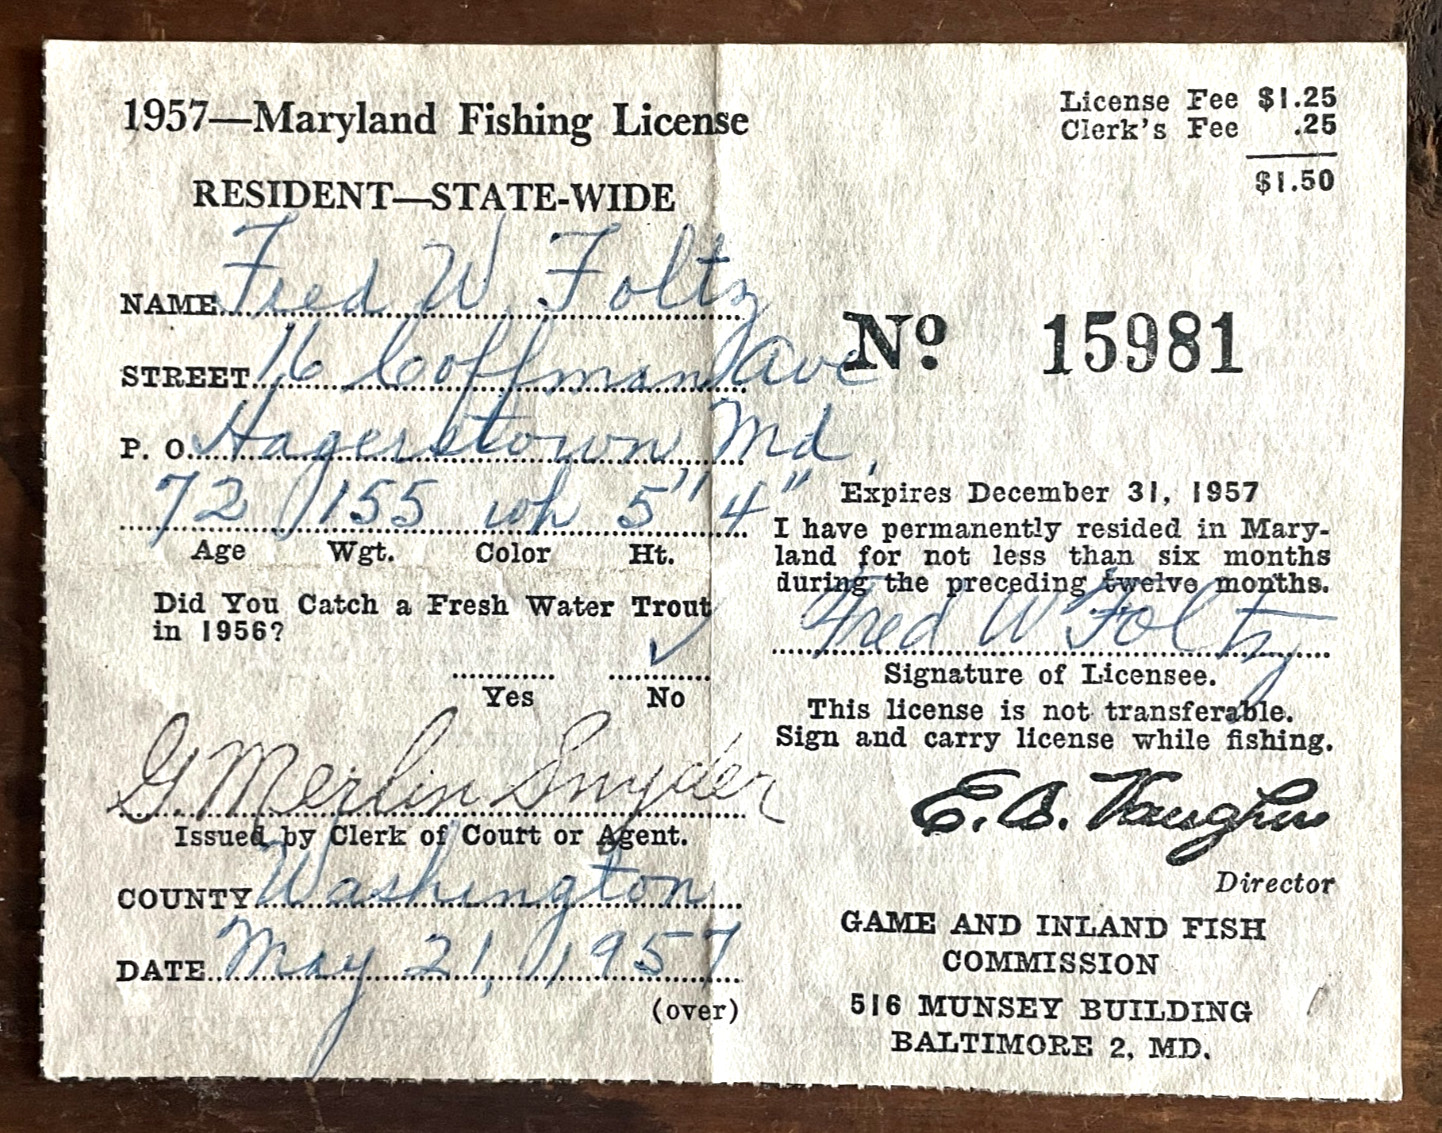 1957—Maryland Fishing License
RESIDENT—STATE-WIDE
NAME Fred W. Foltz
STREET 16 Coffman Ave
P. O. Hagerstown Md.
72 155 wh 5" 4"
Age Wgt. Color Ht.
Did You Catch a Fresh Water Trout
in 1956?
✓
Yes No
G. Merlin Snyder
Issued by Clerk of Court or Agent.
COUNTY Washington
DATE May 21, 1957
(over)
License Fee $1.25
Clerk's Fee .25
$1.50
No 15981
Expires December 31, 1957
I have permanently resided in Mary-
land for not less than six months
during the preceding twelve months.
Fred W Foltz
Signature of Licensee.
This license is not transferable.
Sign and carry license while fishing.
E. B. Vaughn
Director
GAME AND INLAND FISH
COMMISSION
516 MUNSEY BUILDING
BALTIMORE 2, MD.